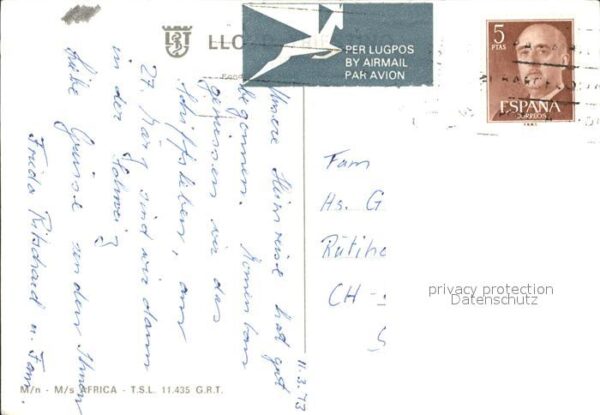 LLO
PER LUGPOS
BY AIRMAIL
PAR AVION
5
PTAS
ESPAÑA
CORREOS
Unsere Heimreise hat gut
begonnen. Momentan
geniessen wir das
Schiffsleben, am
27. März sind wir dann
in der Schweiz
Liebe Grüsse senden Ihnen
Frieda Ritschard u. Fam.
11.3.73
Fam
Hs. G
Rütiho
CH -
S
privacy protection
Datenschutz
M/n - M/s AFRICA - T.S.L. 11.435 G.R.T.